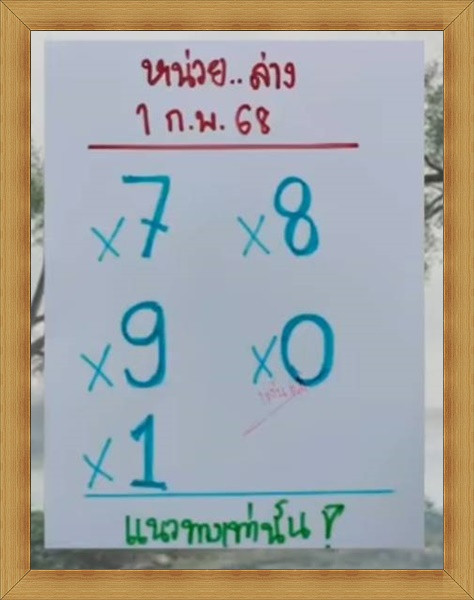 หน่วย..ล่าง
1 ก.พ. 68
x7 x8
x9 x0
x1
แนวทางเท่านั้น!